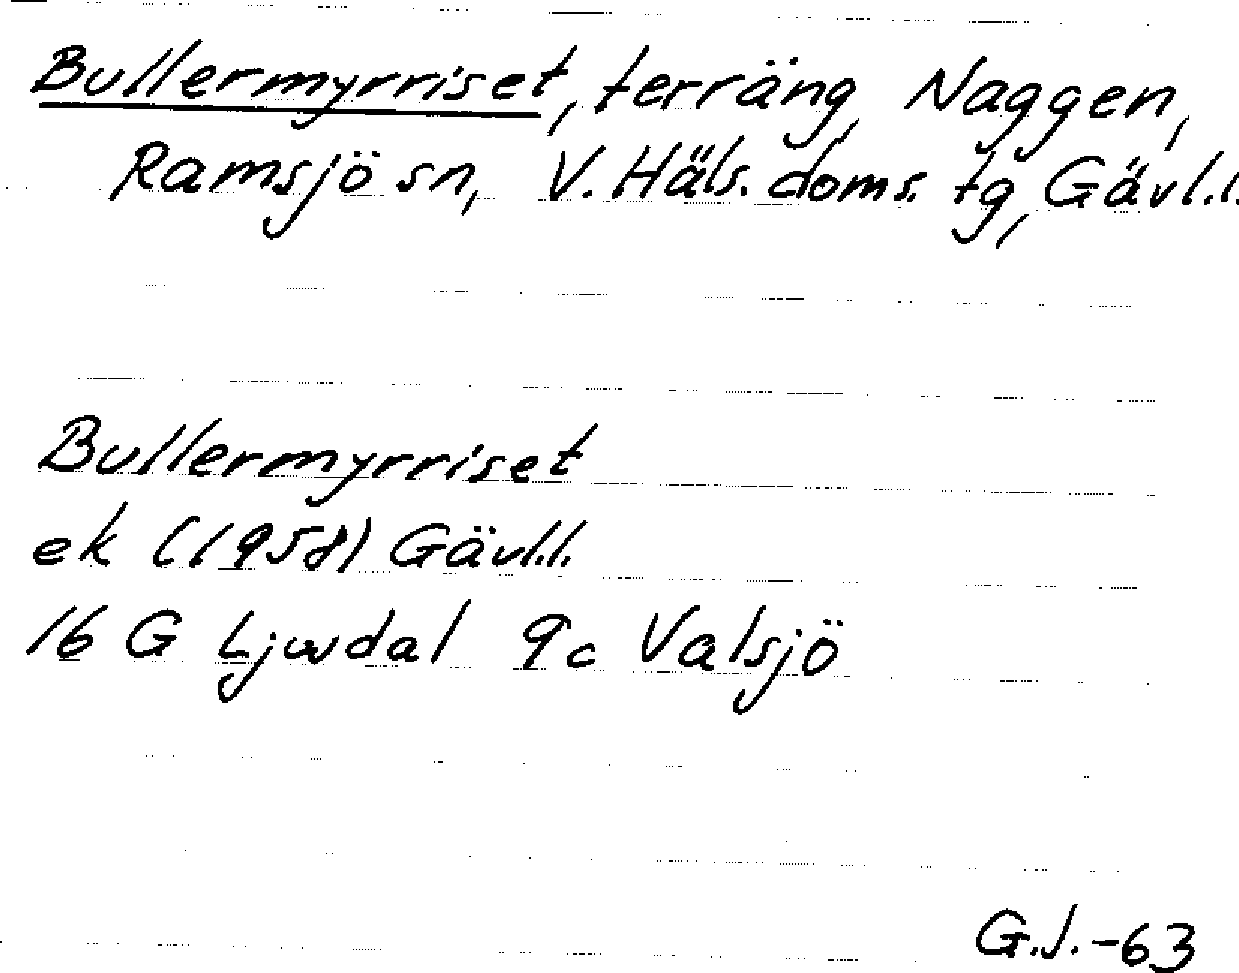 Bullermyrriset, terräng, Naggen,
Ramsjö sn, V. Häls. doms. tg, Gävl.l.
Bullermyrriset
ek (1958) Gävl.l.
16 G Ljusdal 9c Valsjö
G.J.-63